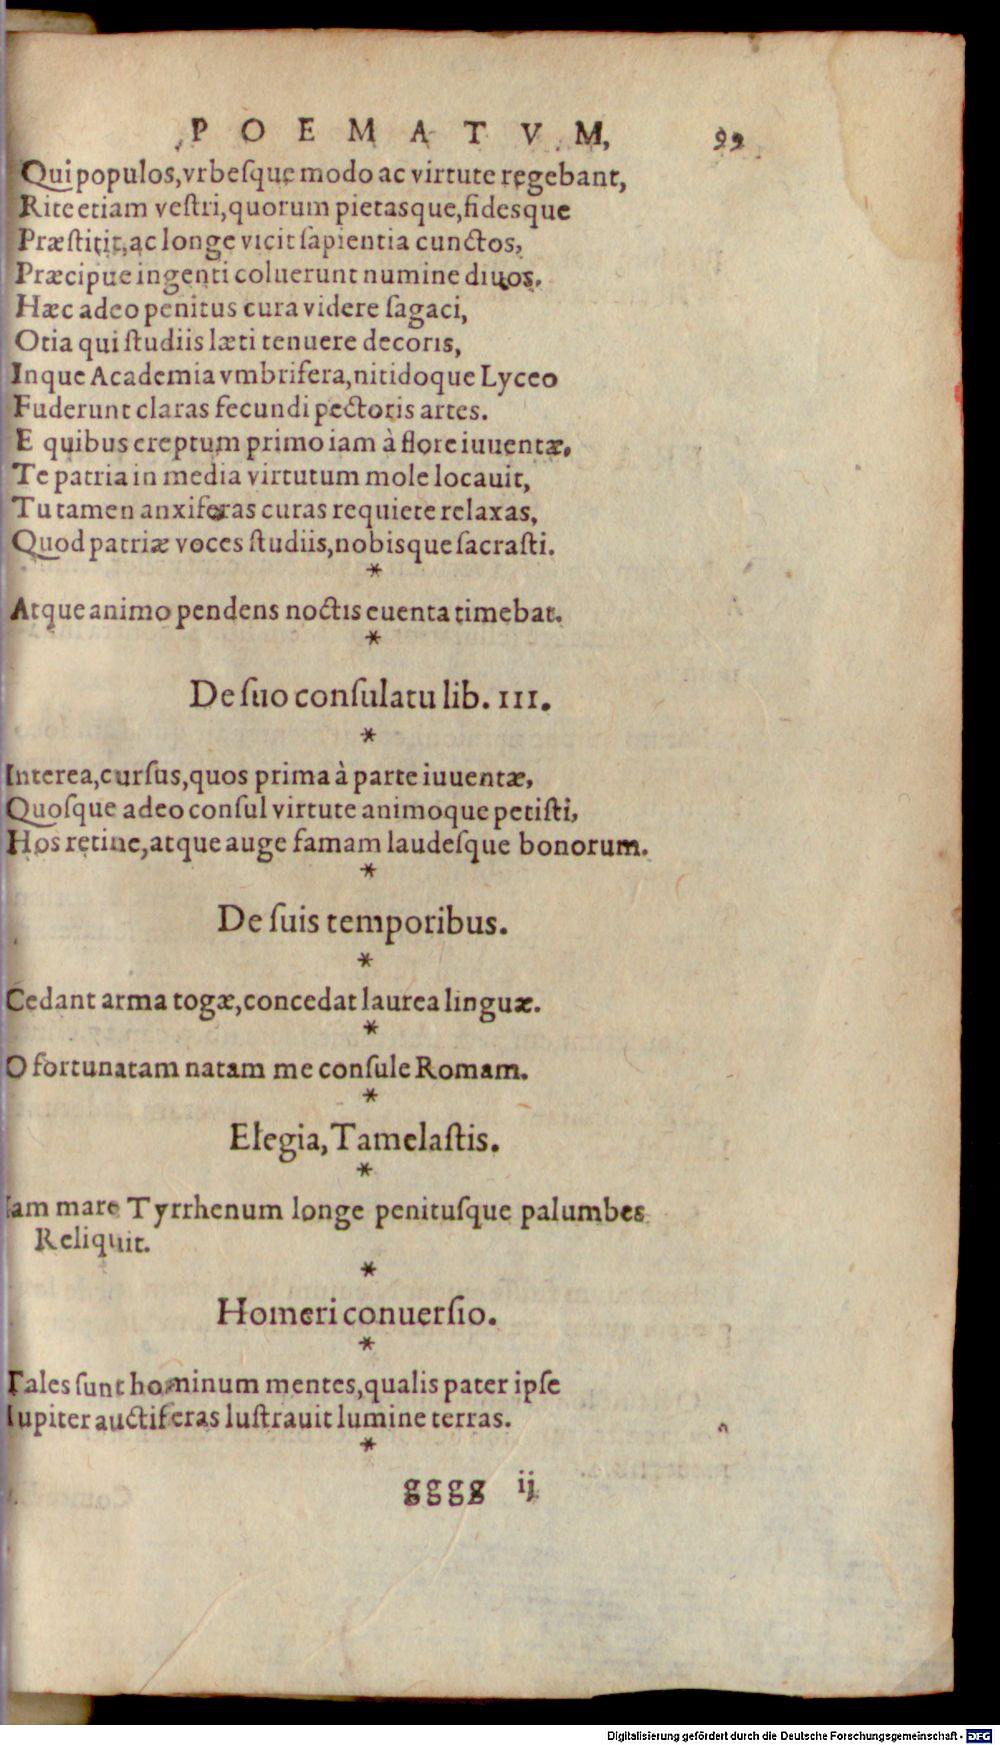 POEMATVM, 99
Qui populos, vrbeſque modo ac virtute regebant,
Rite etiam veſtri, quorum pietasque, fidesque
Præſtitit, ac longe vicit ſapientia cunctos,
Præcipue ingenti coluerunt numine diuos.
Hæc adeo penitus cura videre ſagaci,
Otia qui ſtudiis læti tenuere decoris,
Inque Academia vmbrifera, nitidoque Lyceo
Fuderunt claras fecundi pectoris artes.
E quibus ereptum primo iam à flore iuuentæ,
Te patria in media virtutum mole locauit,
Tu tamen anxiferas curas requiete relaxas,
Quod patriæ voces ſtudiis, nobisque ſacraſti.
*
Atque animo pendens noctis euenta timebat.
*
De ſuo conſulatu lib. III.
*
Interea, curſus, quos prima à parte iuuentæ,
Quoſque adeo conſul virtute animoque petiſti,
Hos retine, atque auge famam laudeſque bonorum.
*
De ſuis temporibus.
*
Cedant arma togæ, concedat laurea linguæ.
*
O fortunatam natam me conſule Romam.
*
Elegia, Tamelaſtis.
*
Iam mare Tyrrhenum longe penituſque palumbes
Reliquit.
*
Homeri conuerſio.
*
Tales ſunt hominum mentes, qualis pater ipſe
Iupiter auctiferas luſtrauit lumine terras.
*
gggg ij
Digitalisierung gefördert durch die Deutsche Forschungsgemeinschaft - DFG